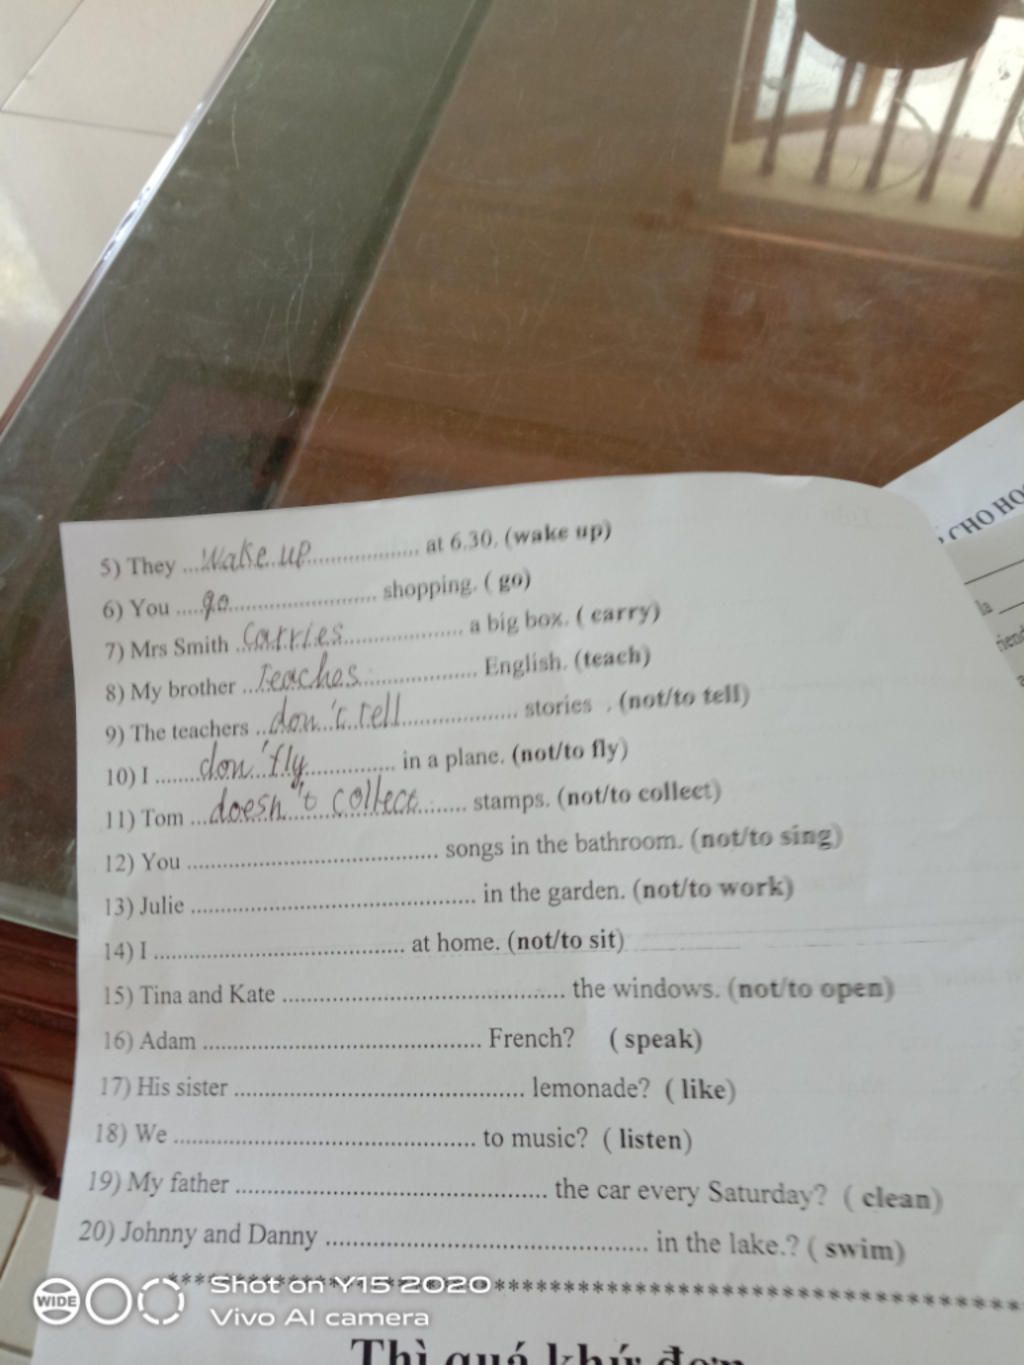 CHO HO
la
riend
5) They ...wake up............... at 6.30. (wake up)
6) You ....go...................... shopping. ( go)
7) Mrs Smith ..carries.................. a big box. ( carry)
8) My brother ...Teaches................. English. (teach)
9) The teachers ...don't tell.................. stories . (not/to tell)
10) I .......don'fly............... in a plane. (not/to fly)
11) Tom ...doesn't collect........ stamps. (not/to collect)
12) You ...................................... songs in the bathroom. (not/to sing)
13) Julie ........................................... in the garden. (not/to work)
14) I ...................................... at home. (not/to sit)
15) Tina and Kate ........................................... the windows. (not/to open)
16) Adam .......................................... French? ( speak)
17) His sister ............................................ lemonade? ( like)
18) We .............................................. to music? ( listen)
19) My father ............................................... the car every Saturday? ( clean)
20) Johnny and Danny ................................................. in the lake.? ( swim)
************************************************************
Thì quá khứ đơn
WIDE
Shot on Y15 2020
Vivo AI camera